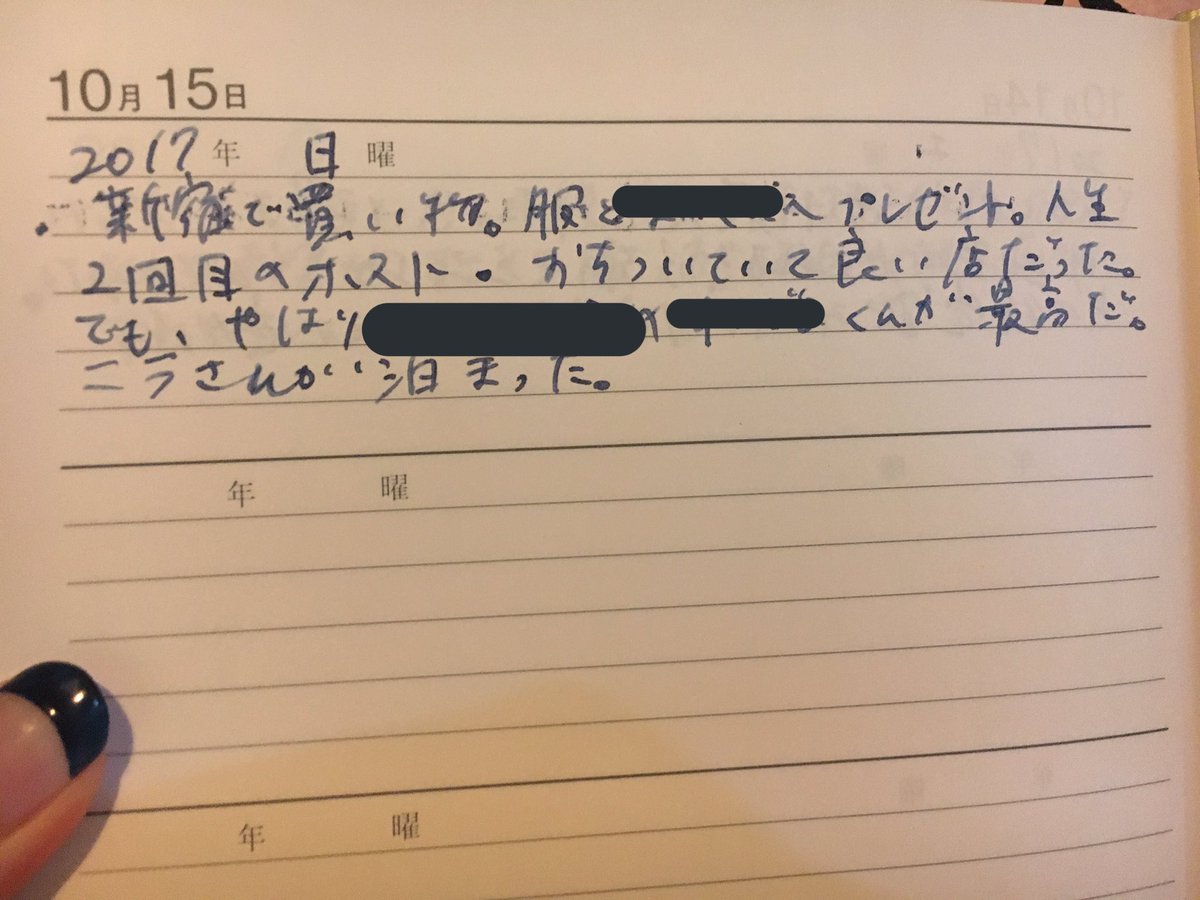 10月15日
2017年 日曜
新宿で買い物。服と へプレゼント。人生
2回目のホスト。おちついていて良い店だった。
でも、やはり の くんが最高だ。
ニラさんが泊まった。
年 曜
年 曜